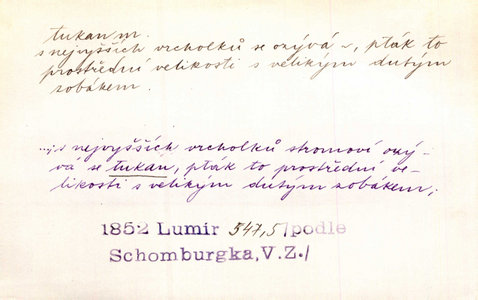 tukan m.
s nejvyšších vrcholků se ozývá ~, pták to
prostřední velikosti s velikým dutým
zobákem.
...; s nejvyšších vrcholků stromoví ozý-
vá se tukán, pták to prostřední ve-
likosti s velikým dutým zobákem,;
1852 Lumír 547,5/podle
Schomburgka,V.Z./